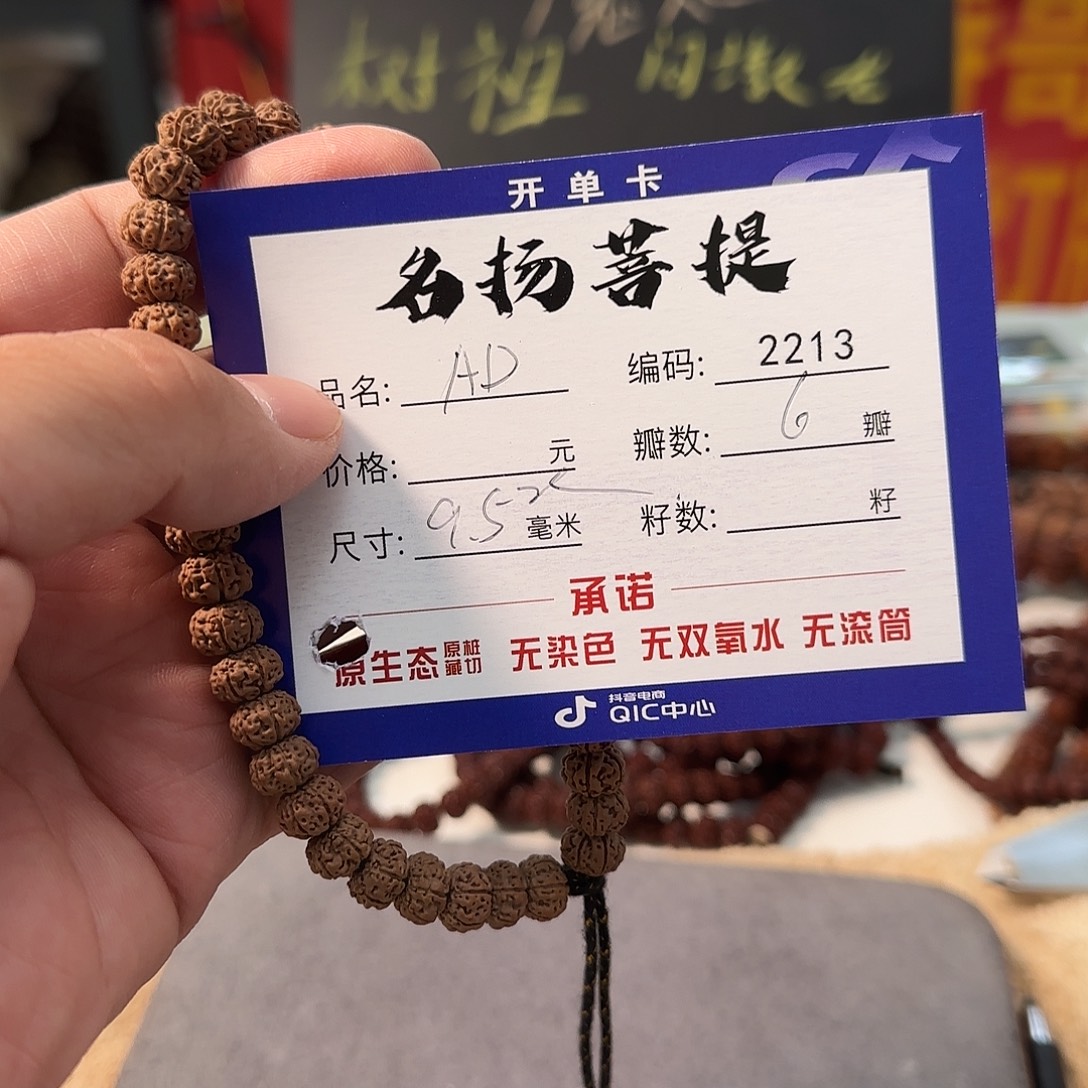 树祖
开单卡
名扬菩提
品名: AD 编码: 2213
价格: 元 瓣数: 6 瓣
尺寸: 9.5 毫米 籽数: 籽
承诺
原生态 原桩藏切 无染色 无双氧水 无滚筒
抖音电商
QIC中心